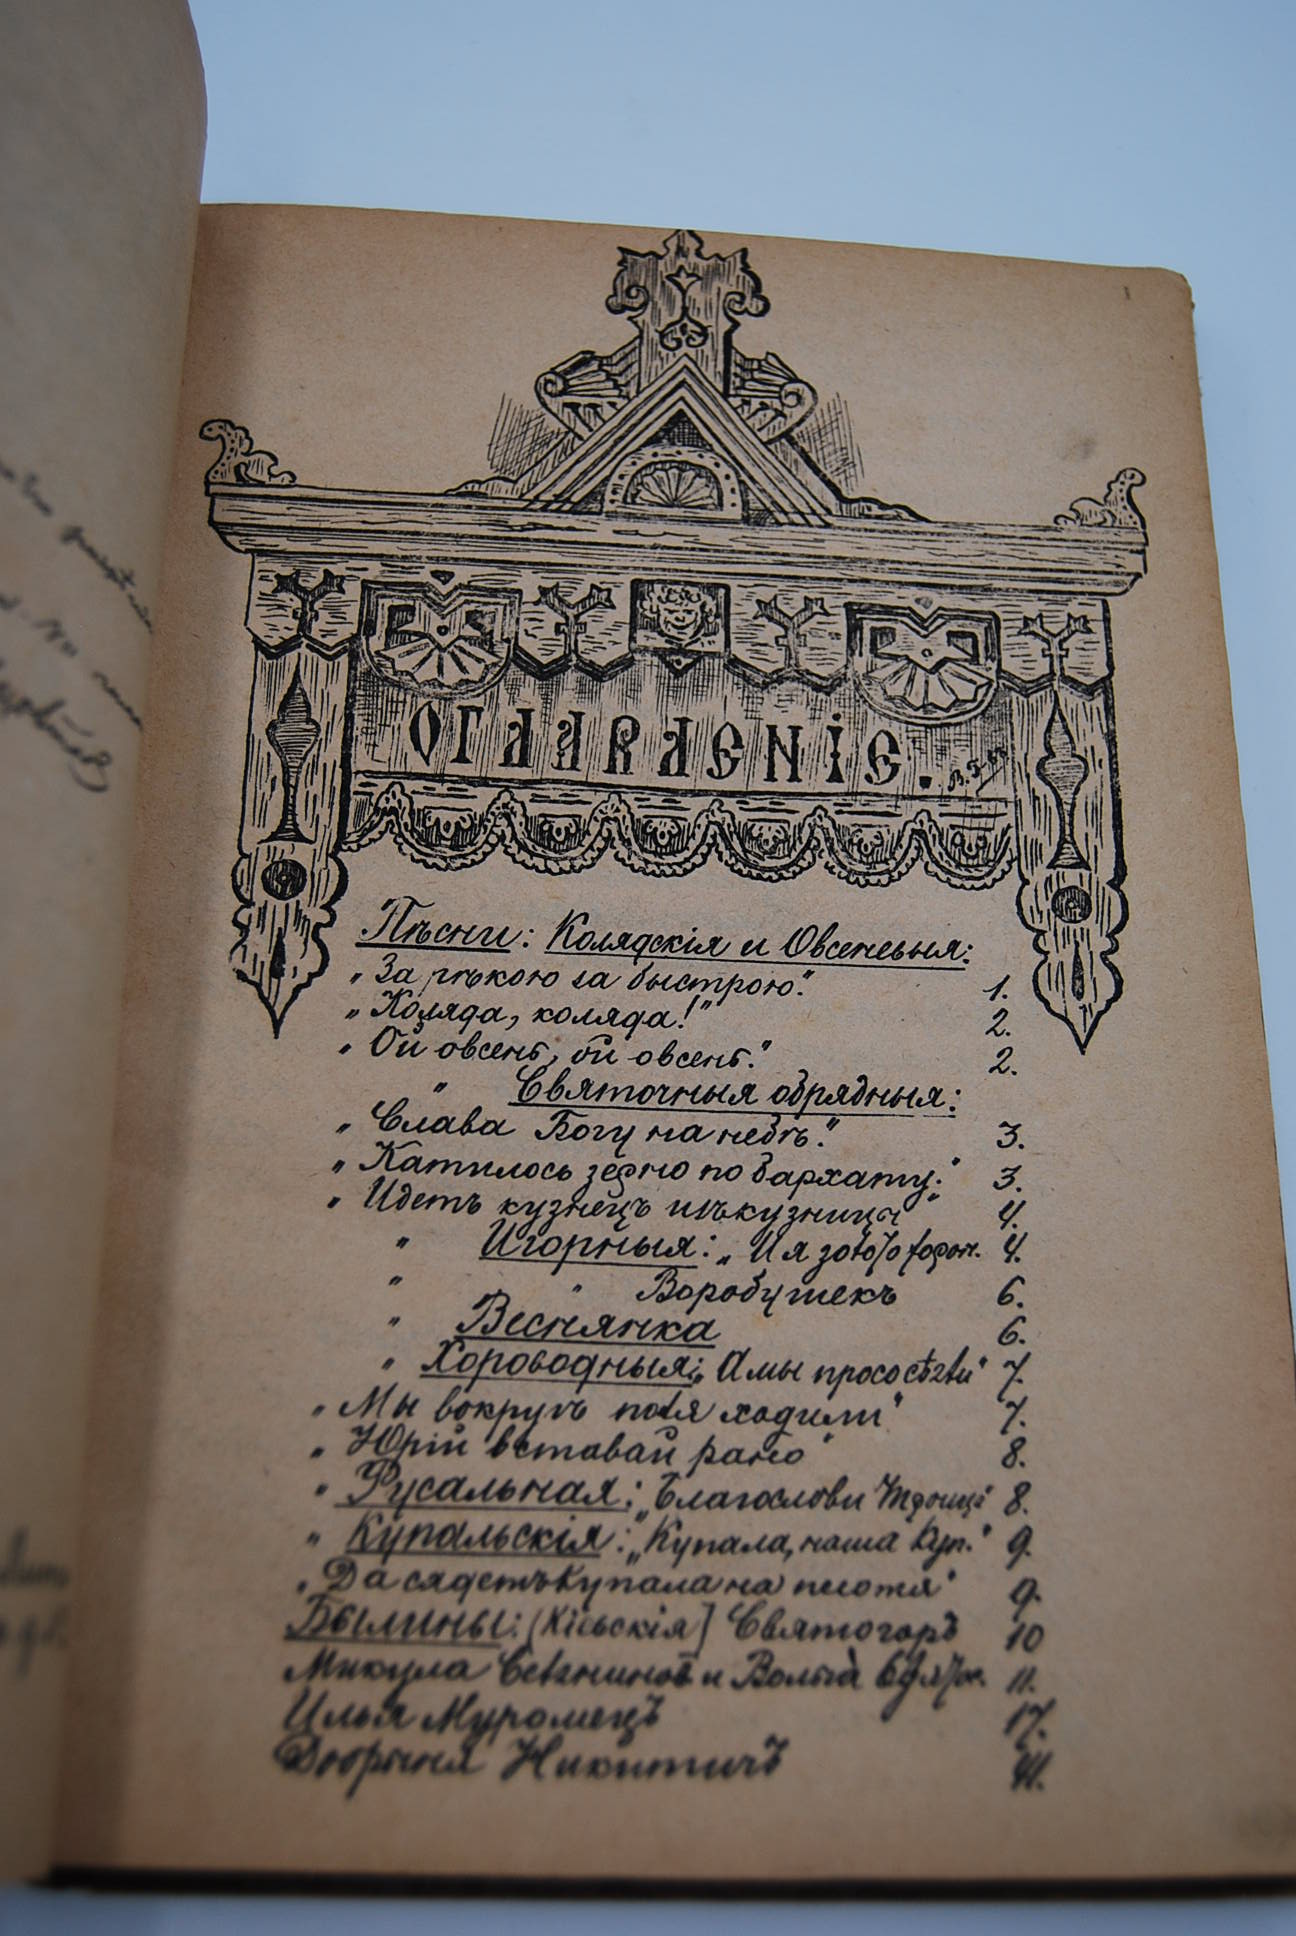 ОГЛАВЛЕНІЕ.
Пѣсни: Колядскія и Овсеневыя:
„За рѣкою за быстрою." 1.
„Коляда, коляда!" 2.
„Ой овсень, ой овсень." 2.
„ Святочныя обрядныя:
„Слава Богу на небѣ." 3.
„Катилось зерно по бархату." 3.
„Идетъ кузнецъ изъ кузницы" 4.
„ Игорныя: „И я золото хорон. 4.
„ „ Воробушекъ 6.
„ Веснянка 6.
„ Хороводныя: „А мы просо сѣяли" 7.
„Мы вокругъ поля ходили" 7.
„Юрій вставай рано" 8.
„Русальная: „Благослови Троица" 8.
„Купальскія: „Купала, наша Куп." 9.
„Да сядетъ Купала на" 9.
Былины: [Кіевскія] Святогоръ 10
Микула Селяниновъ и Вольга 11.
Илья Муромецъ 17.
Добрыня Никитичъ 41.